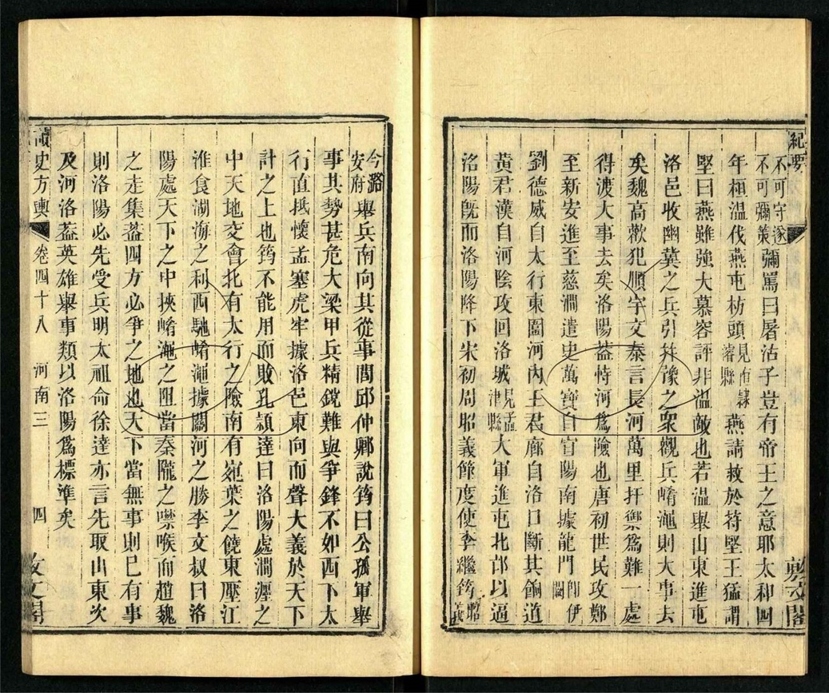 紀要
不可守遂
不可彌策
彌罵曰屠沽子豈有帝王之意耶太和四
年桓溫伐燕屯枋頭
濬縣
燕請救於苻堅王猛謂
堅曰燕雖強大慕容評非溫敵也若溫舉山東進屯
洛邑收幽冀之兵引并豫之衆觀兵崤澠則大事去
矣魏高歡犯順宇文泰言長河萬里扞禦爲難一處
得渡大事去矣洛陽蓋恃河爲險也唐初世民攻鄭
至新安進至慈澗遣史萬寶自宜陽南據龍門
即伊
闕
劉德威自太行東圍河內王君廓自洛口斷其餉道
黃君漢自河陰攻回洛城
見孟
津縣
大軍進屯北邙以逼
洛陽旣而洛陽降下宋初周昭義節度使李繼筠
敷文閣
今潞
安府
舉兵南向其從事閭邱仲卿說筠曰公孤軍舉
事其勢甚危大梁甲兵精銳難與爭鋒不如西下太
行直抵懷孟塞虎牢據洛邑東向而聲大義於天下
計之上也筠不能用而敗孔穎達曰洛陽處澗瀍之
中天地交會北有太行之險南有宛葉之饒東壓江
淮食湖海之利西馳崤澠據關河之勝李文叔曰洛
陽處天下之中挾崤澠之阻當秦隴之噤喉而趙魏
之走集蓋四方必爭之地也天下當無事則已有事
則洛陽必先受兵明太祖命徐達亦言先取山東次
及河洛蓋英雄舉事類以洛陽爲標準矣
讀史方輿
卷四十八　河南三
四
敷文閣